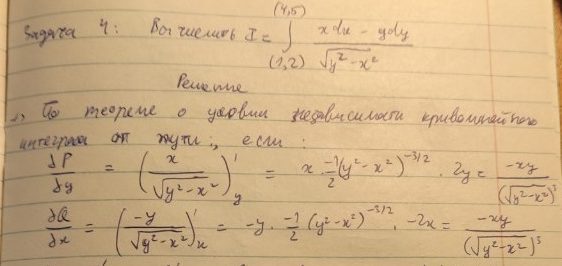 Задача 4: Вычислить I = ∫_{(1,2)}^{(4,5)} \frac{x dx - y dy}{\sqrt{y^2 - x^2}}
Решение
По теореме о условии независимости криволинейного
интеграла от пути, если :
\frac{∂P}{∂y} = \left(\frac{x}{\sqrt{y^2-x^2}}\right)'_y = x \cdot \frac{-1}{2}(y^2-x^2)^{-3/2} \cdot 2y = \frac{-xy}{(\sqrt{y^2-x^2})^3}
\frac{∂Q}{∂x} = \left(\frac{-y}{\sqrt{y^2-x^2}}\right)'_x = -y \cdot \frac{-1}{2}(y^2-x^2)^{-3/2} \cdot -2x = \frac{-xy}{(\sqrt{y^2-x^2})^3}